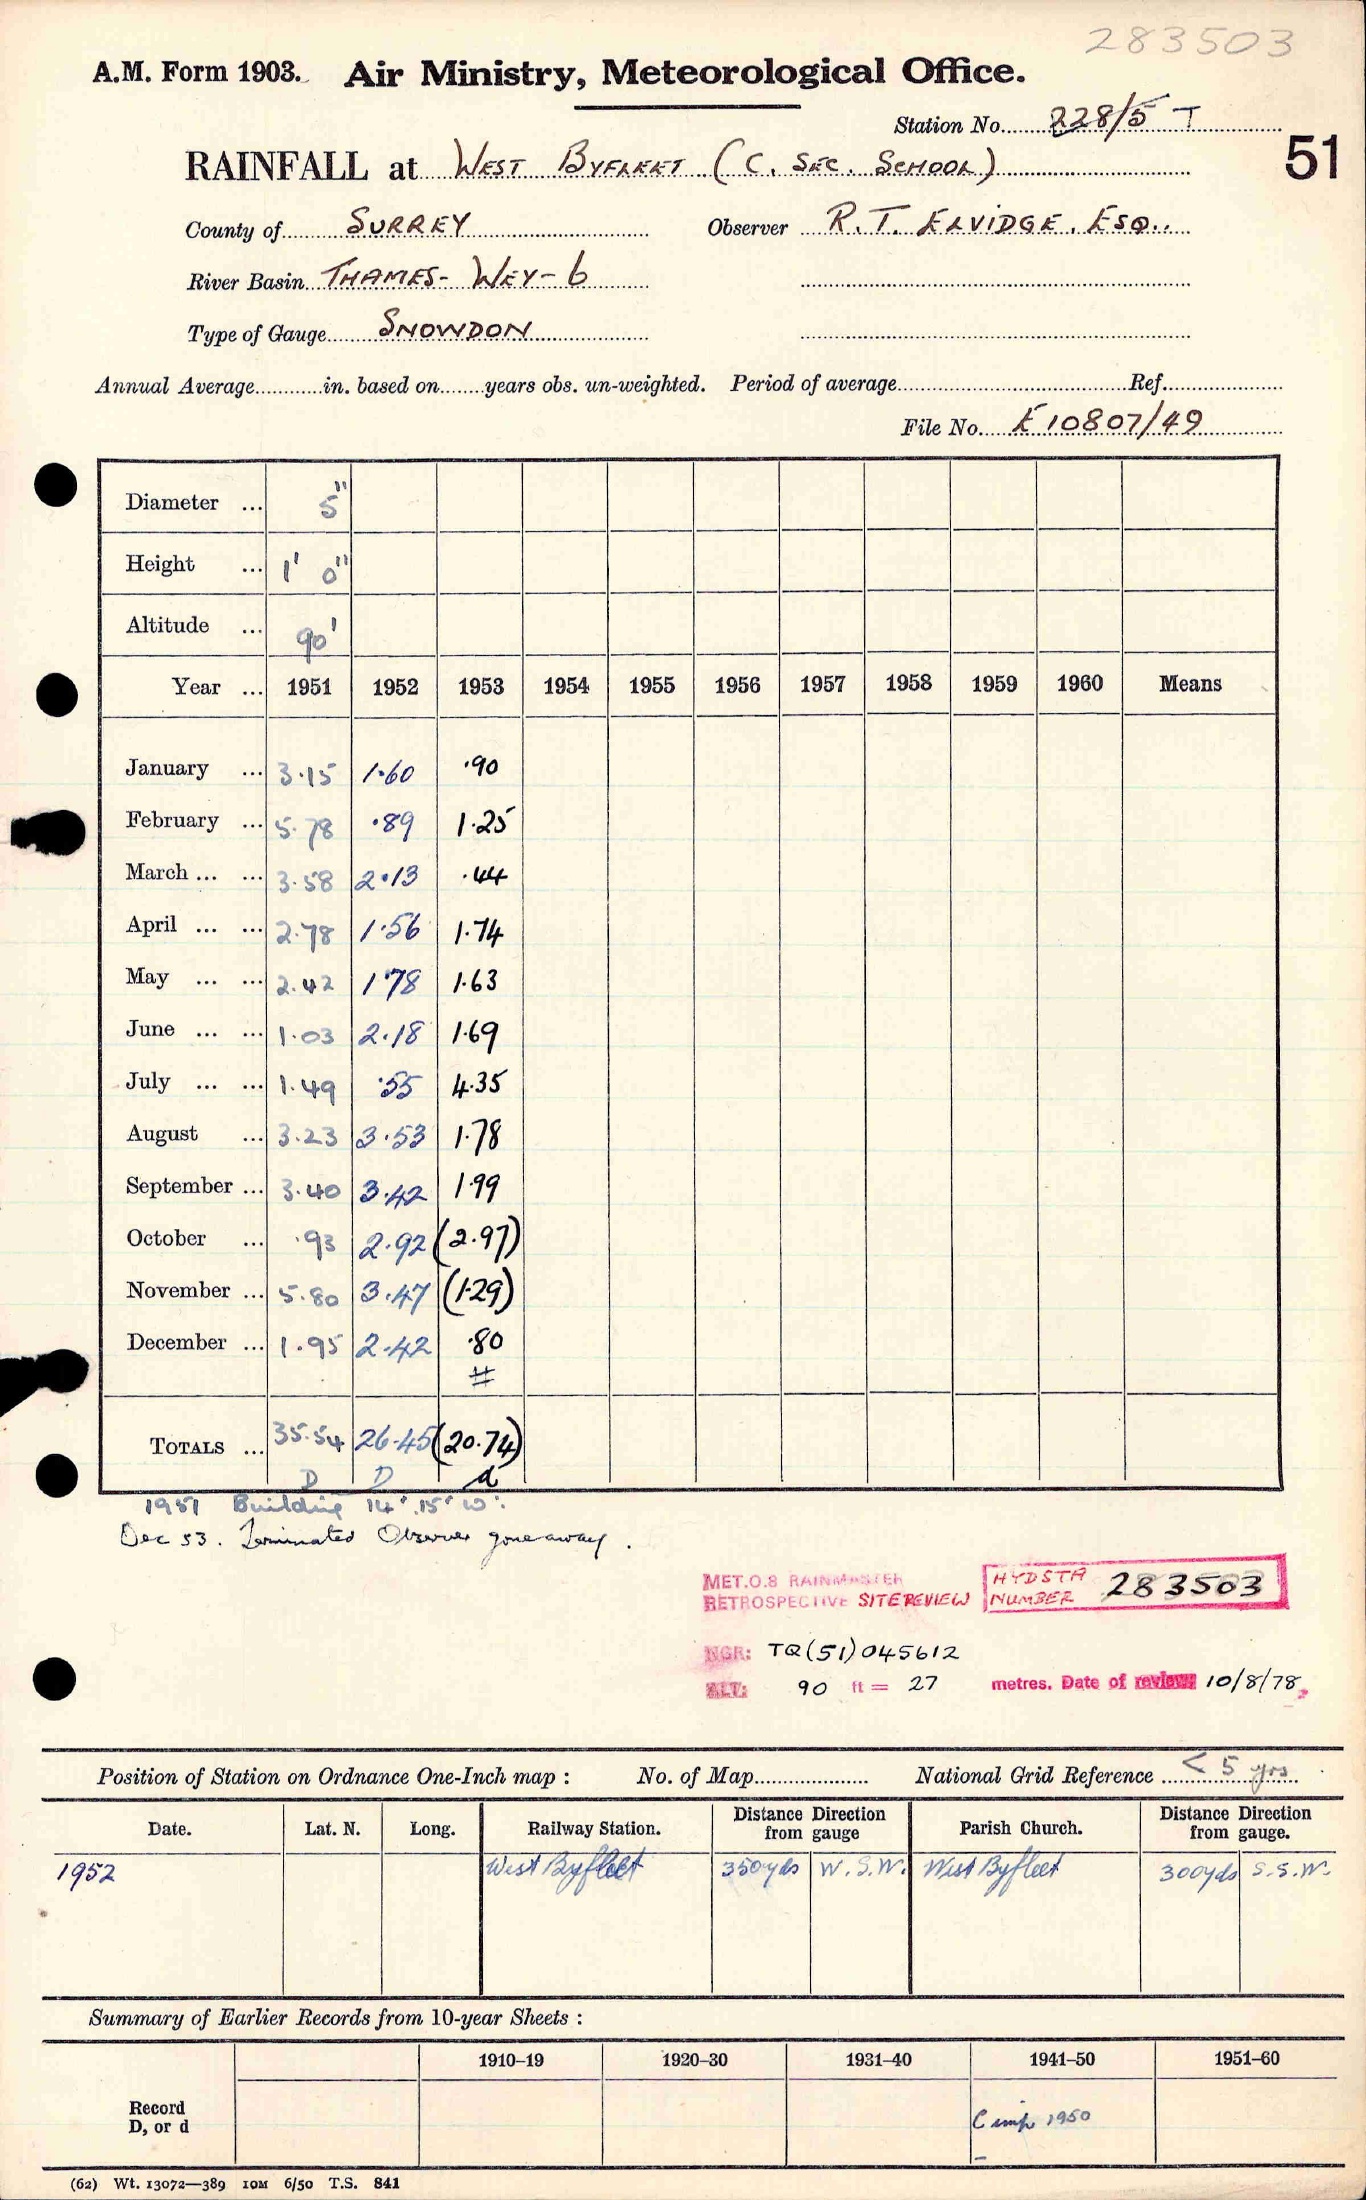 283503
A.M. Form 1903. Air Ministry, Meteorological Office.
Station No. 228/5 T
51
RAINFALL at West Byfleet (C. Sec. School)
County of Surrey Observer R.T. Elvidge. Esq.
River Basin Thames- Wey- 6
Type of Gauge Snowdon
Annual Average............in. based on.......years obs. un-weighted. Period of average.......... Ref..........
File No. E 10807/49
Diameter ... 5"
Height ... 1' 0"
Altitude ... 90'
Year ... 1951 1952 1953 1954 1955 1956 1957 1958 1959 1960 Means
January ... 3.15 1.60 .90
February ... 5.78 .89 1.25
March ... ... 3.58 2.13 .44
April ... ... 2.78 1.56 1.74
May ... ... 2.42 1.78 1.63
June ... ... 1.03 2.18 1.69
July ... ... 1.49 .55 4.35
August ... 3.23 3.53 1.78
September ... 3.40 3.42 1.99
October ... .93 2.92 (2.97)
November ... 5.80 3.47 (1.29)
December ... 1.95 2.42 .80
#
Totals ... 35.54 26.45 (20.74)
D D d
1951 Building 14' 15' W.
Dec 53. Terminated Observer gone away.
MET.O.8 RAINMASTER
RETROSPECTIVE SITE REVIEW
HYDSTA NUMBER 283503
NGR: TQ(51)045612
ALT: 90 ft = 27 metres. Date of review: 10/8/78
Position of Station on Ordnance One-Inch map : No. of Map.......... National Grid Reference < 5 yrs
Date. Lat. N. Long. Railway Station. Distance Direction from gauge Parish Church. Distance Direction from gauge.
1952 West Byfleet 350yds W.S.W. West Byfleet 300yds S.S.W.
Summary of Earlier Records from 10-year Sheets :
1910–19 1920–30 1931–40 1941–50 1951–60
Record D, or d 1950
(62) Wt. 13072—389 10M 6/50 T.S. 841